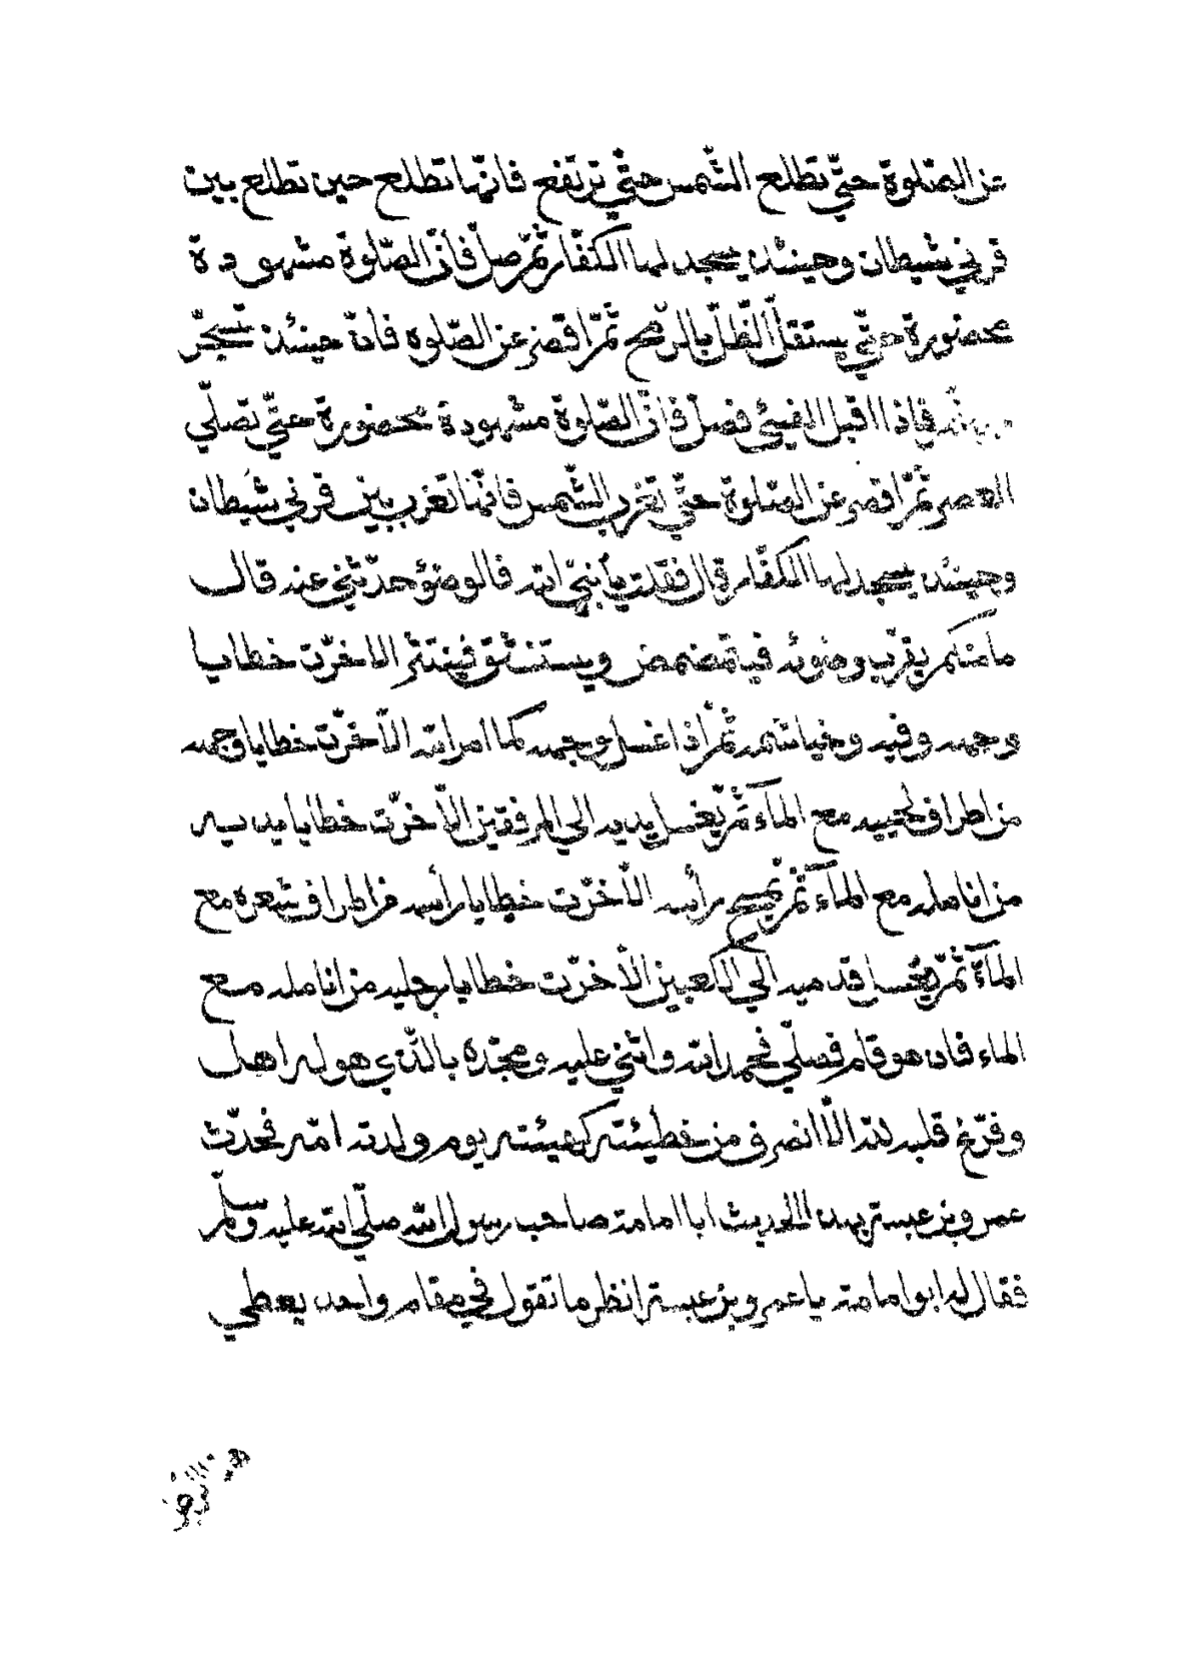 عن الصّلوة حتّي تطلع الشّمس حتّي ترتفع فانّها تطلع حين تطلع بين
قرني شيطان وحينئذ يسجد لها الكفّار ثمّ صلّ فانّ الصّلوة مشهودة
محضورة حتّي يستقلّ الظّلّ بالرّمح ثمّ اقصر عن الصّلوة فانّ حينئذ تسجّر
جهنّم فاذا اقبل الفيئ فصلّ فانّ الصّلوة مشهودة محضورة حتّي تصلّي
العصر ثمّ اقصر عن الصّلوة حتّي تغرب الشّمس فانّها تغرب بين قرني شيطان
وحينئذ يسجد لها الكفّار قال فقلت يا نبيّ الله فالوضوٓ حدّثني عنه قال
ما منكم يقرّب وضوئه فيتمضمض ويستنشق فينتثر الا خرّت خطايا
وجهه وفيه وخياشمه ثمّ اذا غسل وجهه كما امر الله الّا خرّت خطايا وجهه
من اطراف لحييه مع المآء ثمّ يغسل يديه الي المرفقين الّا خرّت خطايا يديه
من انامله مع المآء ثمّ يمسح رأسه الّا خرّت خطايا رأسه من اطراف شعره مع
المآء ثمّ يغسل قدميه الي الكعبين الّا خرّت خطايا رجليه من انامله مع
الماء فان هو قام فصلّي فحمد الله واثني عليه ومجّده بالّذي هو له اهل
وفرّغ قلبه لله الّا انصرف من خطيئته كهيئته يوم ولدته امّه فحدّث
عمرو بن عبسة بهذا الحديث ابا امامة صاحب رسول الله صلّي الله عليه وسلّم
فقال له ابو امامة يا عمرو بن عبسة انظر ما تقول في مقام واحد يعطي